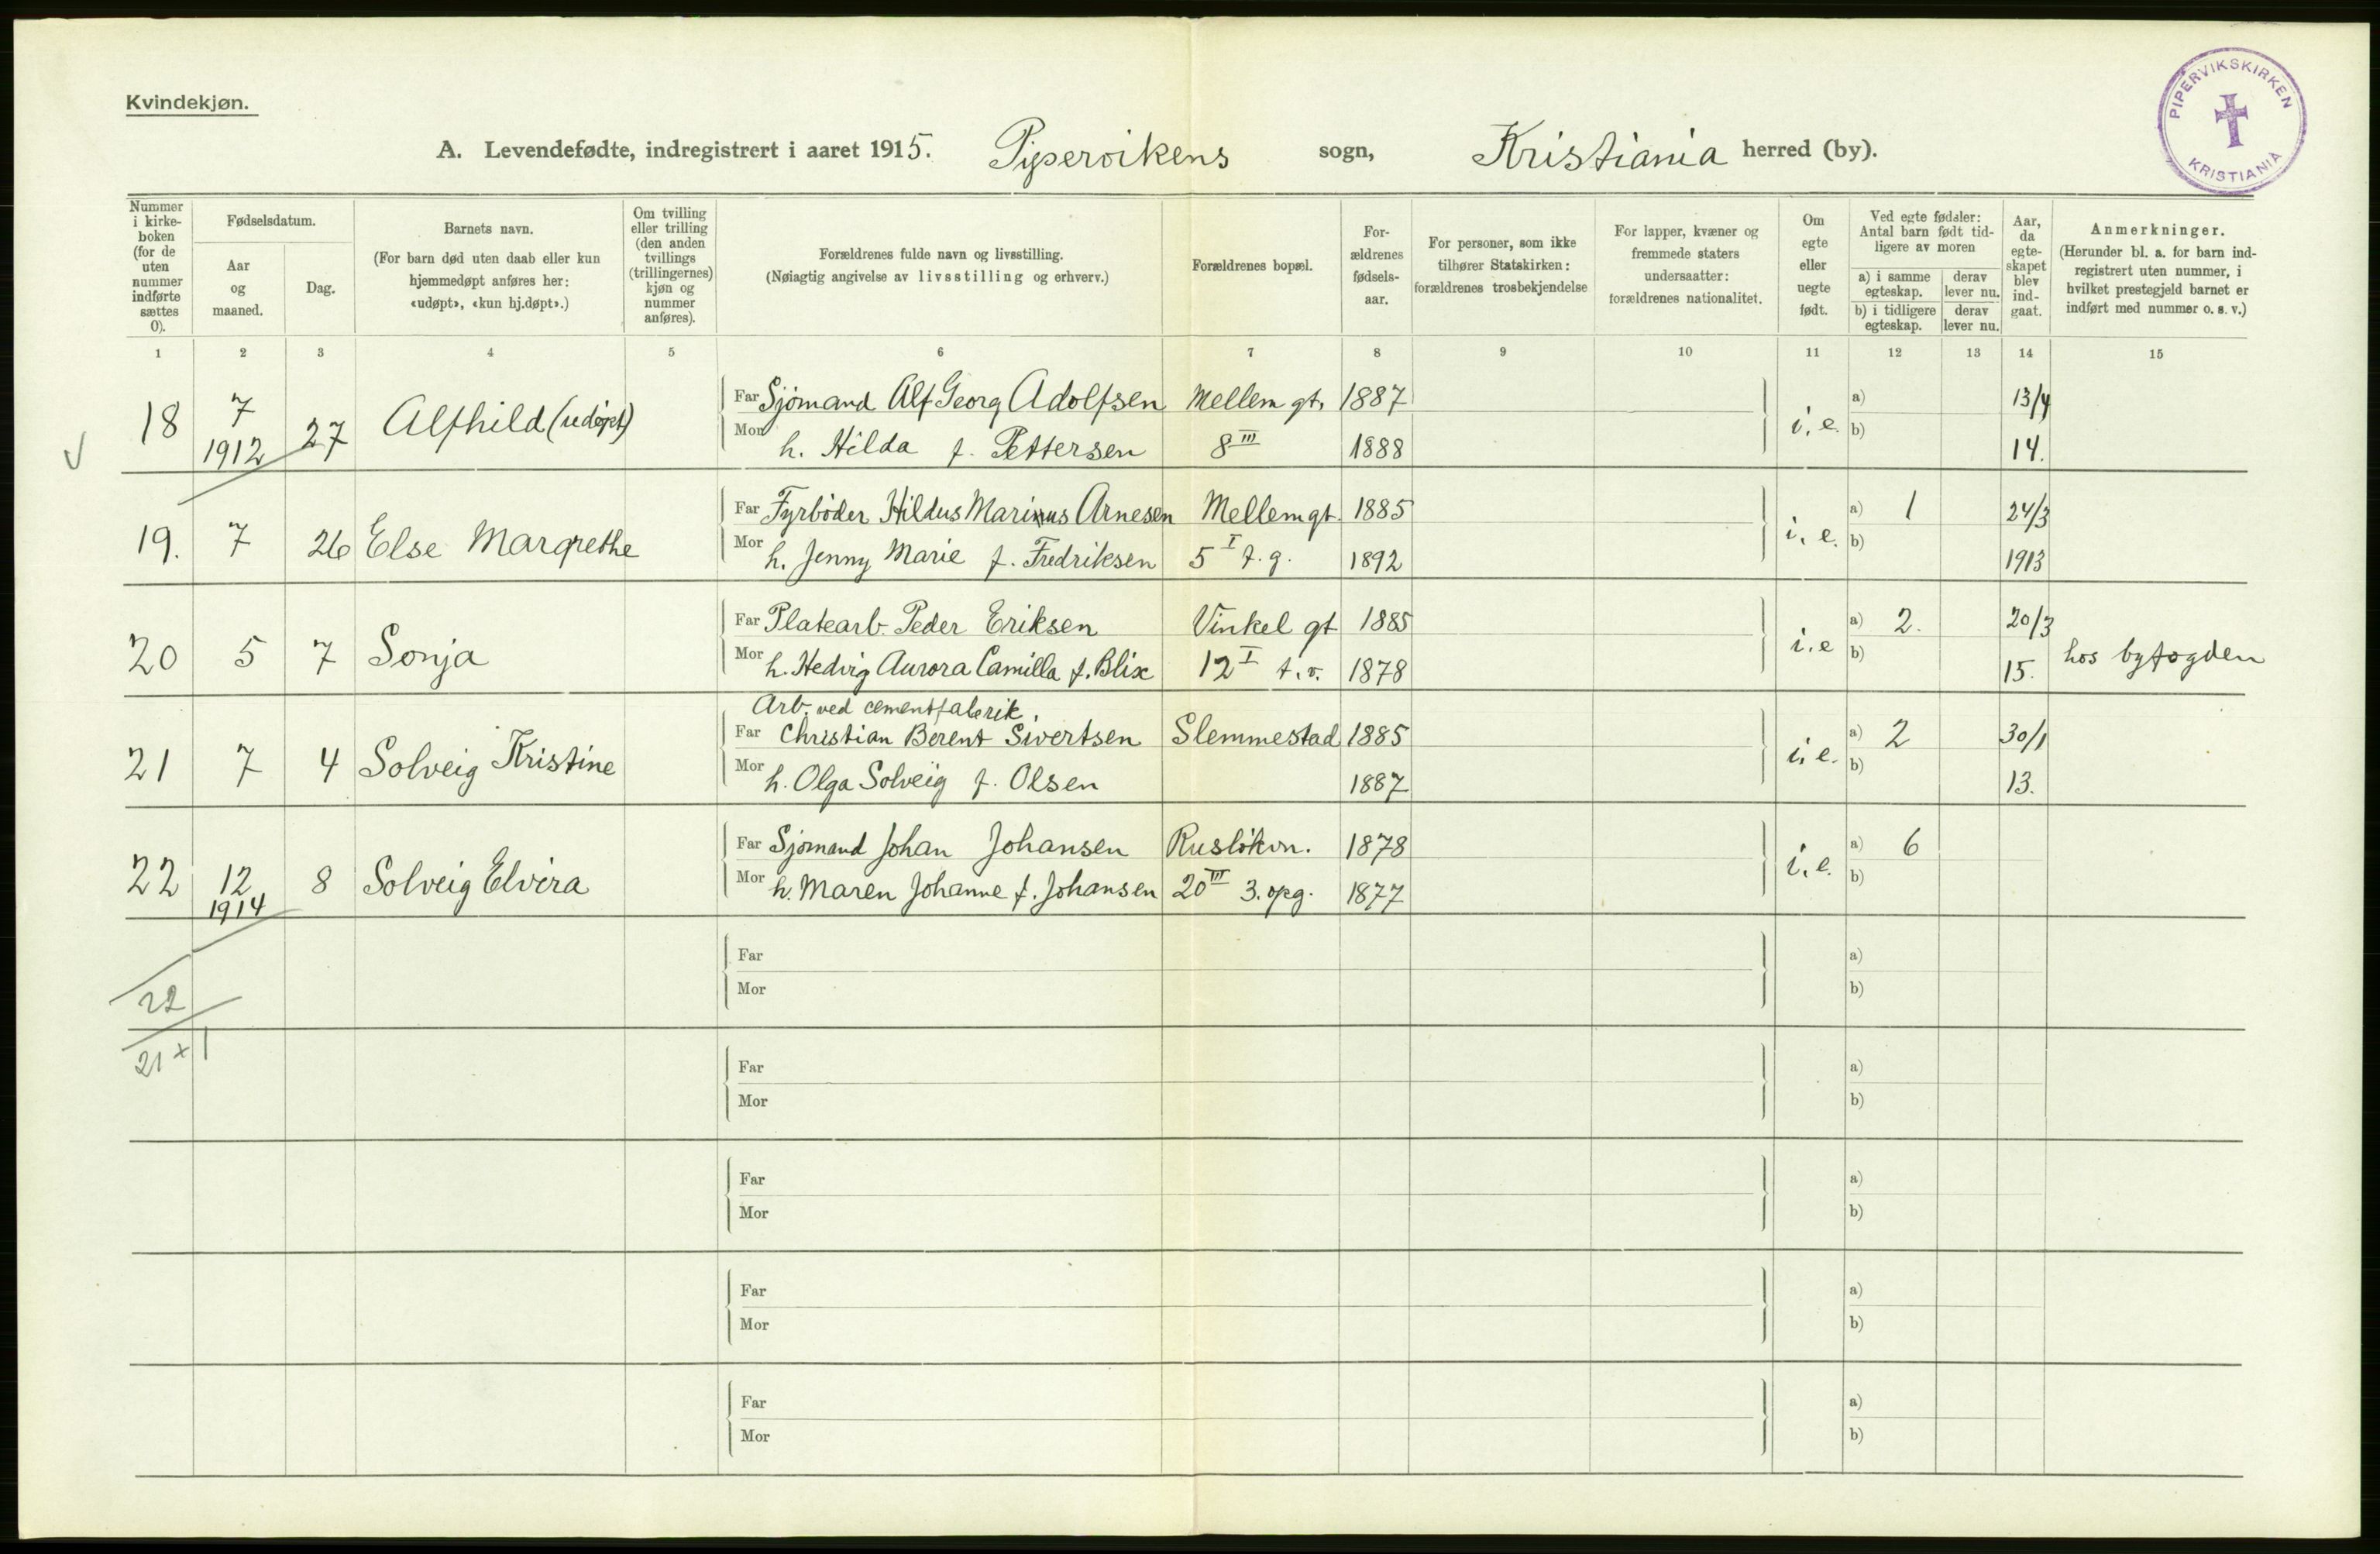 Kvindekjøn.
PIPERVIKSKIRKEN
KRISTIANIA
A. Levendefødte, indregistrert i aaret 1915. Pipervikens sogn, Kristiania herred (by).
Nummer i kirke-boken (for de uten nummer indførte sættes 0).
Fødselsdatum.
Aar og maaned.
Dag.
Barnets navn.
(For barn død uten daab eller kun hjemmedøpt anføres her: «udøpt», «kun hj.døpt».)
Om tvilling eller trilling (den anden tvillings (trillingernes) kjøn og nummer anføres).
Forældrenes fulde navn og livsstilling.
(Nøiagtig angivelse av livsstilling og erhverv.)
Forældrenes bopæl.
For-ældrenes fødsels-aar.
For personer, som ikke tilhører Statskirken: forældrenes trosbekjendelse
For lapper, kvæner og fremmede staters undersaatter: forældrenes nationalitet.
Om egte eller uegte født.
Ved egte fødsler: Antal barn født tid-ligere av moren
a) i samme egteskap.
derav lever nu.
b) i tidligere egteskap.
derav lever nu.
Aar, da egte-skapet blev ind-gaat.
Anmerkninger.
(Herunder bl. a. for barn ind-registrert uten nummer, i hvilket prestegjeld barnet er indført med nummer o. s. v.)
1 2 3 4 5 6 7 8 9 10 11 12 13 14 15
Far Sjömand Alf Georg Adolfsen Mellem gt. 1887 a) 13/4
18 7 1912 27 Alfhild (udøpt) i. e.
Mor h. Hilda f. Pettersen 8 III 1888 b) 14.
Far Fyrböder Hildus Marinus Arnesen Mellemgt. 1885 a) 1 24/3
19. 7 26 Else Margrethe i. e.
Mor h. Jenny Marie f. Fredriksen 5 I f. g. 1892 b) 1913
Far Platearb. Peder Eriksen Vinkel gt 1885 a) 2. 20/3
20 5 7 Sonja i. e hos byfogden
Mor h. Hedvig Aurora Camilla f. Blix 12 I t. v. 1878 b) 15.
Arb. ved cementfabrik.
Far Christian Berent Sivertsen Slemmestad 1885 a) 2 30/1
21 7 4 Solveig Kristine i. e.
Mor h. Olga Solveig f. Olsen 1887 b) 13.
Far Sjömand Johan JohansenRuslökvn. 1878 a) 6
22 12 1914 8 Solveig Elvira i. e.
Mor h. Maren Johanne f. Johansen 20 III 3. opg. 1877 b)
Far a)
22
Mor b)
21 x 1
Far a)
Mor b)
Far a)
Mor b)
Far a)
Mor b)
Far a)
Mor b)